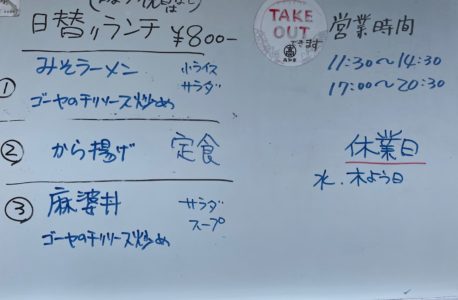 日替りランチ ¥800-
① みそラーメン 小ライス
サラダ
ゴーヤのチリソース炒め
② から揚げ 定食
③ 麻婆丼 サラダ
スープ
ゴーヤのチリソース炒め
TAKE
OUT
できます
営業時間
11:30〜14:30
17:00〜20:30
休業日
水.木よう日